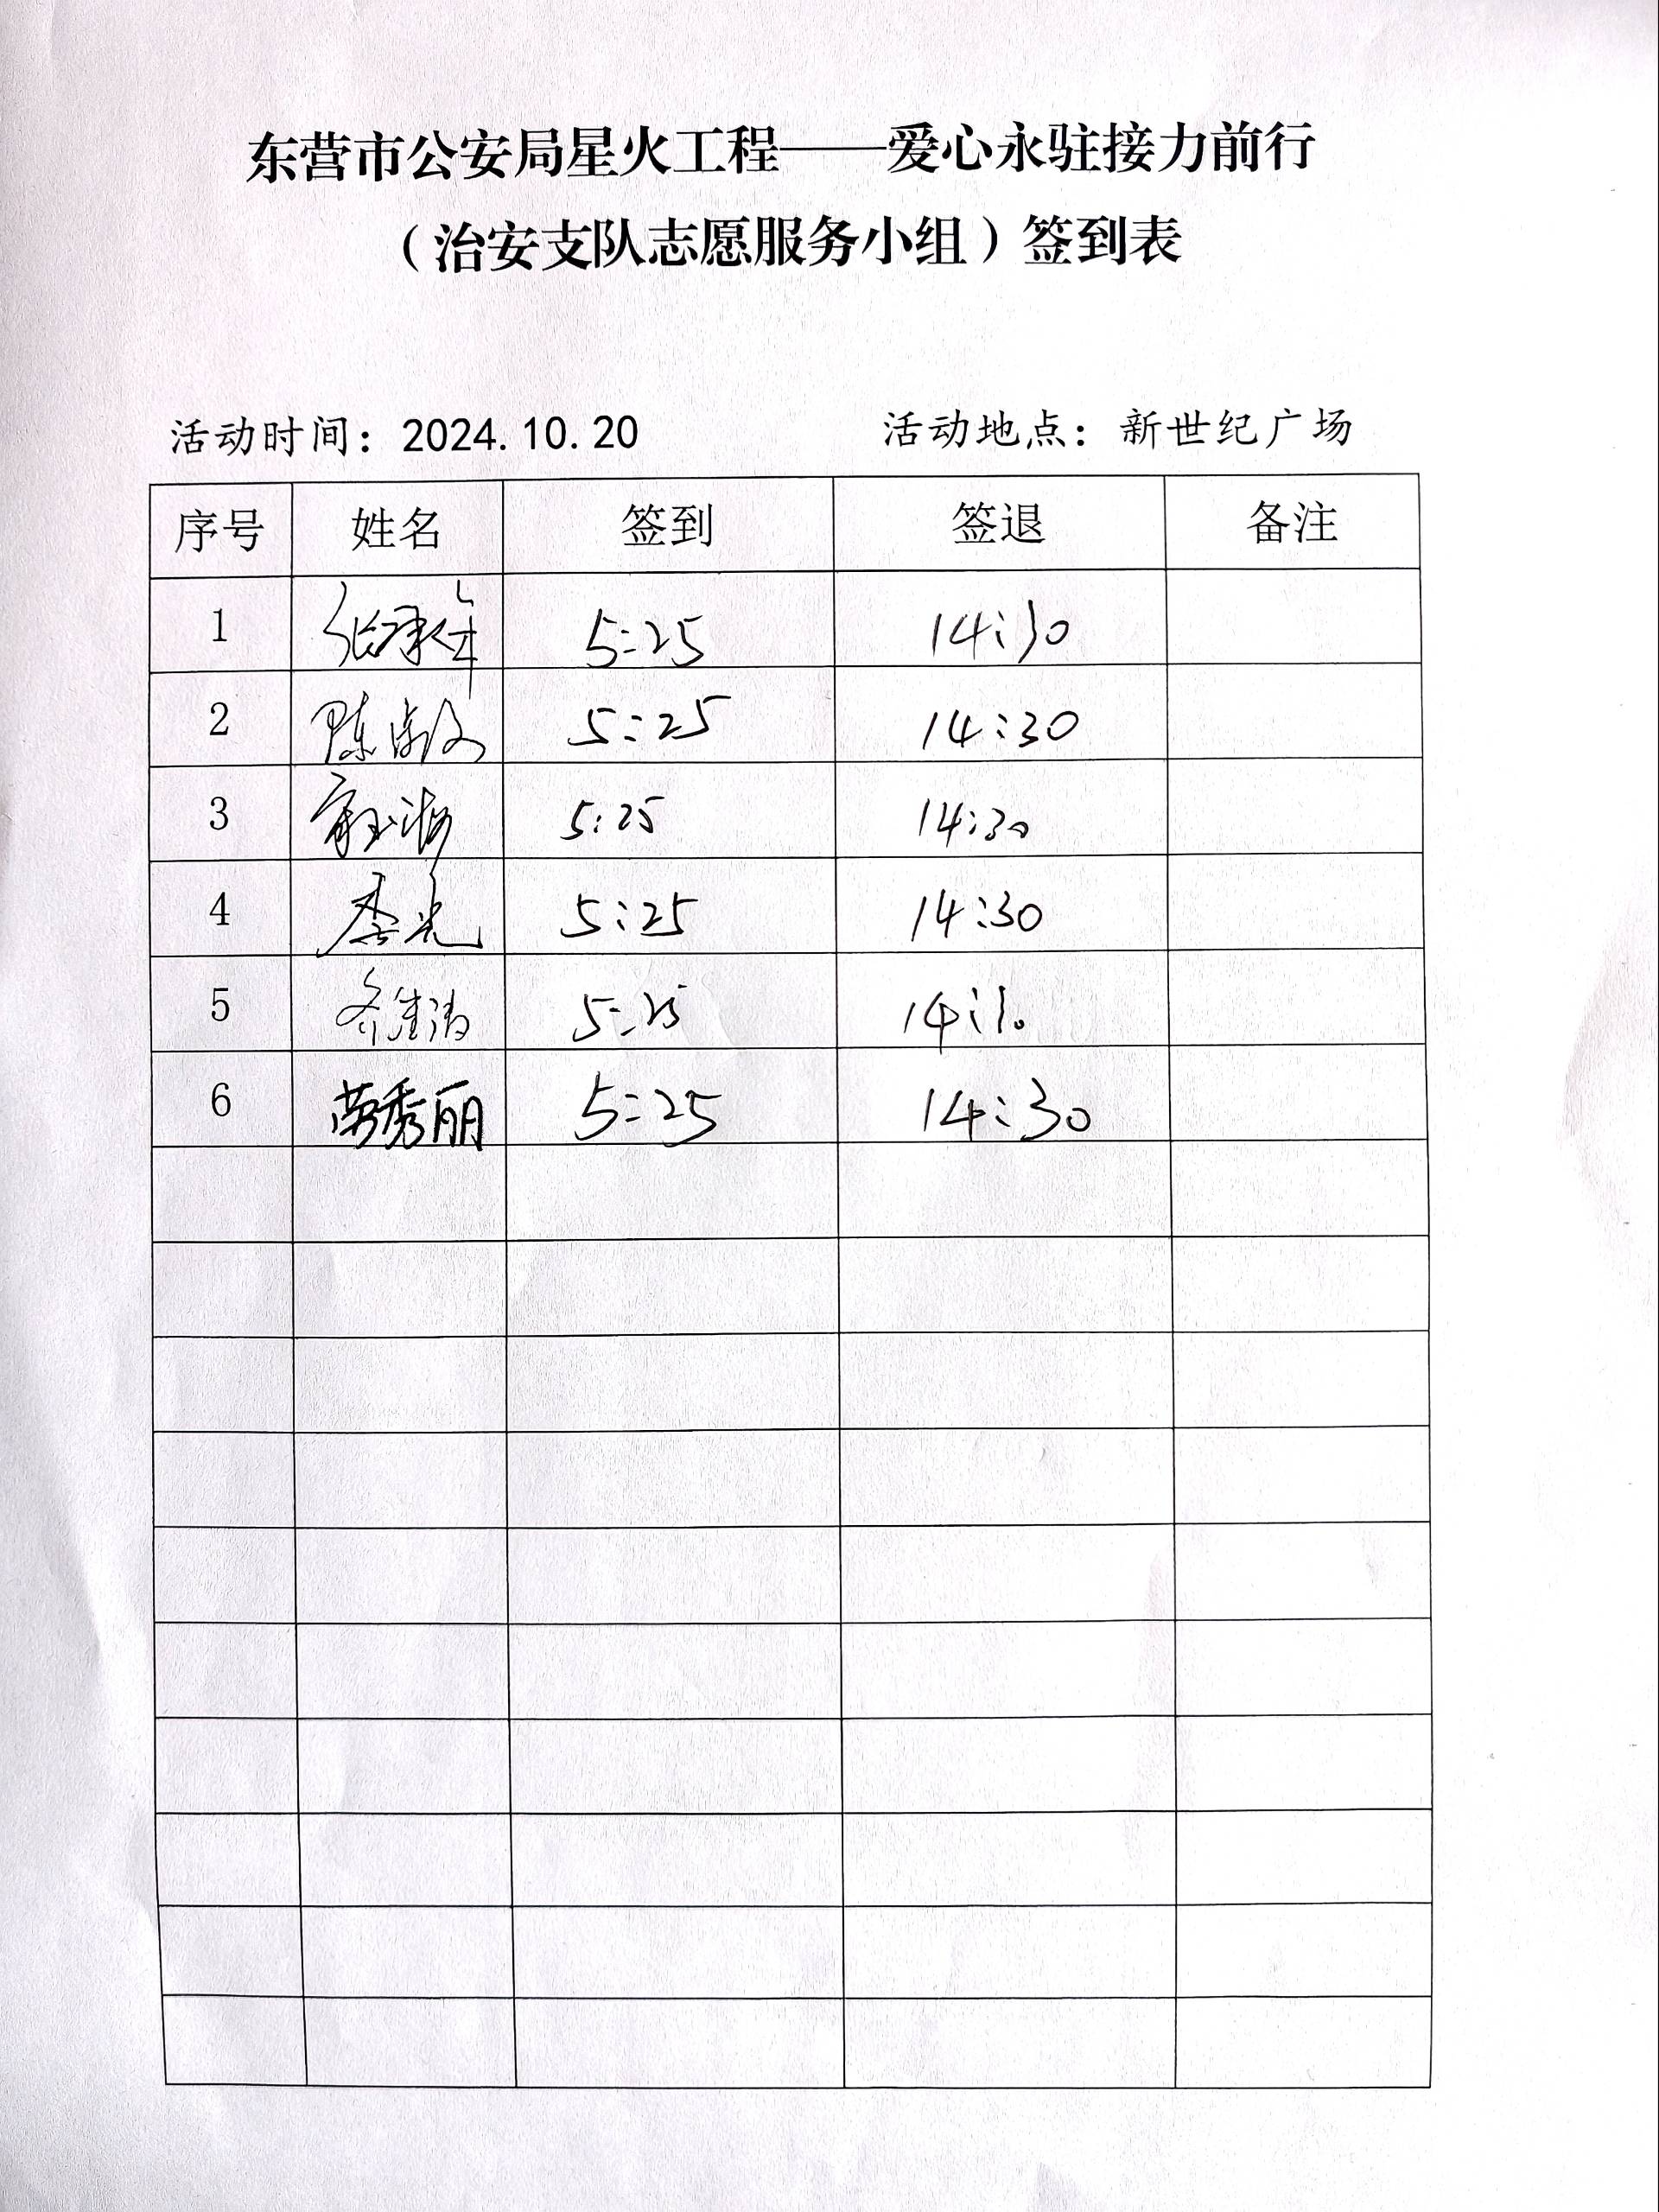 东营市公安局星火工程——爱心永驻接力前行
（治安支队志愿服务小组）签到表
活动时间：2024.10.20 活动地点：新世纪广场
序号 姓名 签到 签退 备注
1 张承 5:25 14:30
2 陈 5:25 14:30
3 海 5:25 14:30
4 李光 5:25 14:30
5 5:25 14:30
6 荣秀丽 5:25 14:30